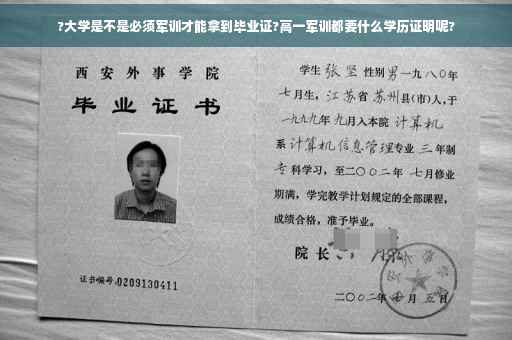 ?大学是不是必须军训才能拿到毕业证?高一军训都要什么学历证明呢?
西安外事学院
毕业证书
证书编号:0209130411
学生 张坚 性别男 一九八〇年
七月生，江苏省 苏州县(市)人,于
一九九九年九月入本院 计算机
系 计算机信息管理专业 三 年制
专科学习，至二〇〇二年 七月修业
期满，学完教学计划规定的全部课程，
成绩合格，准予毕业。
院长
二〇〇二年 月五日